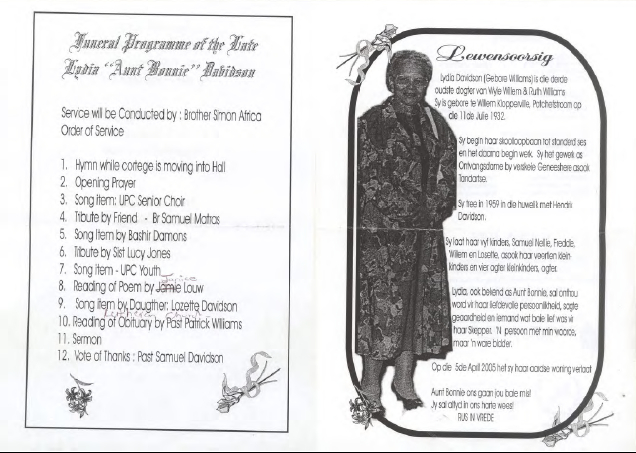 Funeral Programme of the Late
Lydia "Aunt Bonnie" Davidson
Service will be Conducted by : Brother Simon Africa
Order of Service
1. Hymn while cortege is moving into Hall
2. Opening Prayer
3. Song item: UPC Senior Choir
4. Tribute by Friend - Br Samuel Matras
5. Song Item by Bashir Damons
6. Tribute by Sist Lucy Jones
7. Song Item - UPC Youth
8. Reading of Poem by Jamie Louw
9. Song Item by Daugther: Lozette Davidson
10. Reading of Obituary by Past Patrick Williams
11. Sermon
12. Vote of Thanks : Past Samuel Davidson
Lewensoorsig
Lydia Davidson (Gebore Williams) is die derde
oudste dogter van Wyle Willem & Ruth Williams
Sy is gebore te Willem Klopperville, Potchefstroom op
die 11de Julie 1932.
Sy begin haar skoolloopbaan tot standerd ses
en het daarna begin werk. Sy het gewerk as
Ontvangsdame by verskeie Geneeshere asook
Tandartse.
Sy tree in 1959 in die huwelik met Hendrik
Davidson.
Sy laat haar vyf kinders, Samuel Nellie, Freddie,
Willem en Losette, asook haar veertien klein
kinders en vier agter kleinkinders, agter.
Lydia, ook bekend as Aunt Bonnie, sal onthou
word vir haar liefdevolle persoonlikheid, sagte
geaardheid en iemand wat baie lief was vir
haar Skepper. 'N persoon met min woorde,
maar 'n ware bidder.
Op die 5de April 2005 het sy haar aardse woning verlaat
Aunt Bonnie ons gaan jou baie mis!
Jy sal altyd in ons harte wees!
RUS IN VREDE